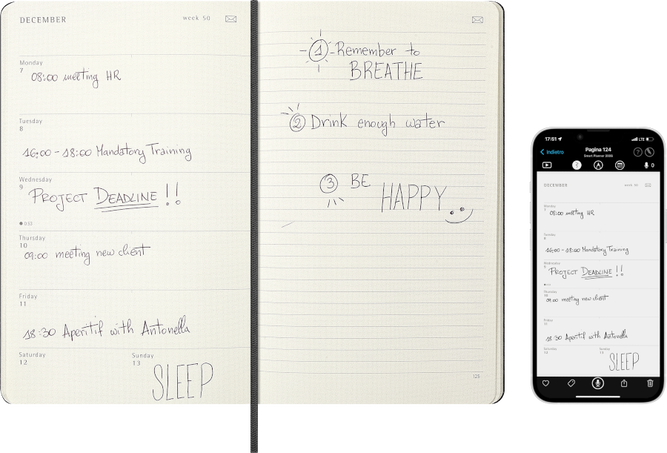 DECEMBER
week 50
Monday
7
08:00 meeting HR
Tuesday
8
16:00 - 18:00 Mandatory Training
Wednesday
9
PROJECT DEADLINE !!
Thursday
10
09:00 meeting new client
Friday
11
18:30 Aperitif with Antonella
Saturday
12
Sunday
13
SLEEP
1 Remember to
BREATHE
2 Drink enough water
3 BE
HAPPY
125
17:51
LTE
Indietro
Pagina 124
0
DECEMBER
week 50
08:00 meeting HR
16:00 - 18:00 Mandatory Training
PROJECT DEADLINE !!
09:00 meeting new client
18:30 Aperitif with Antonella
SLEEP